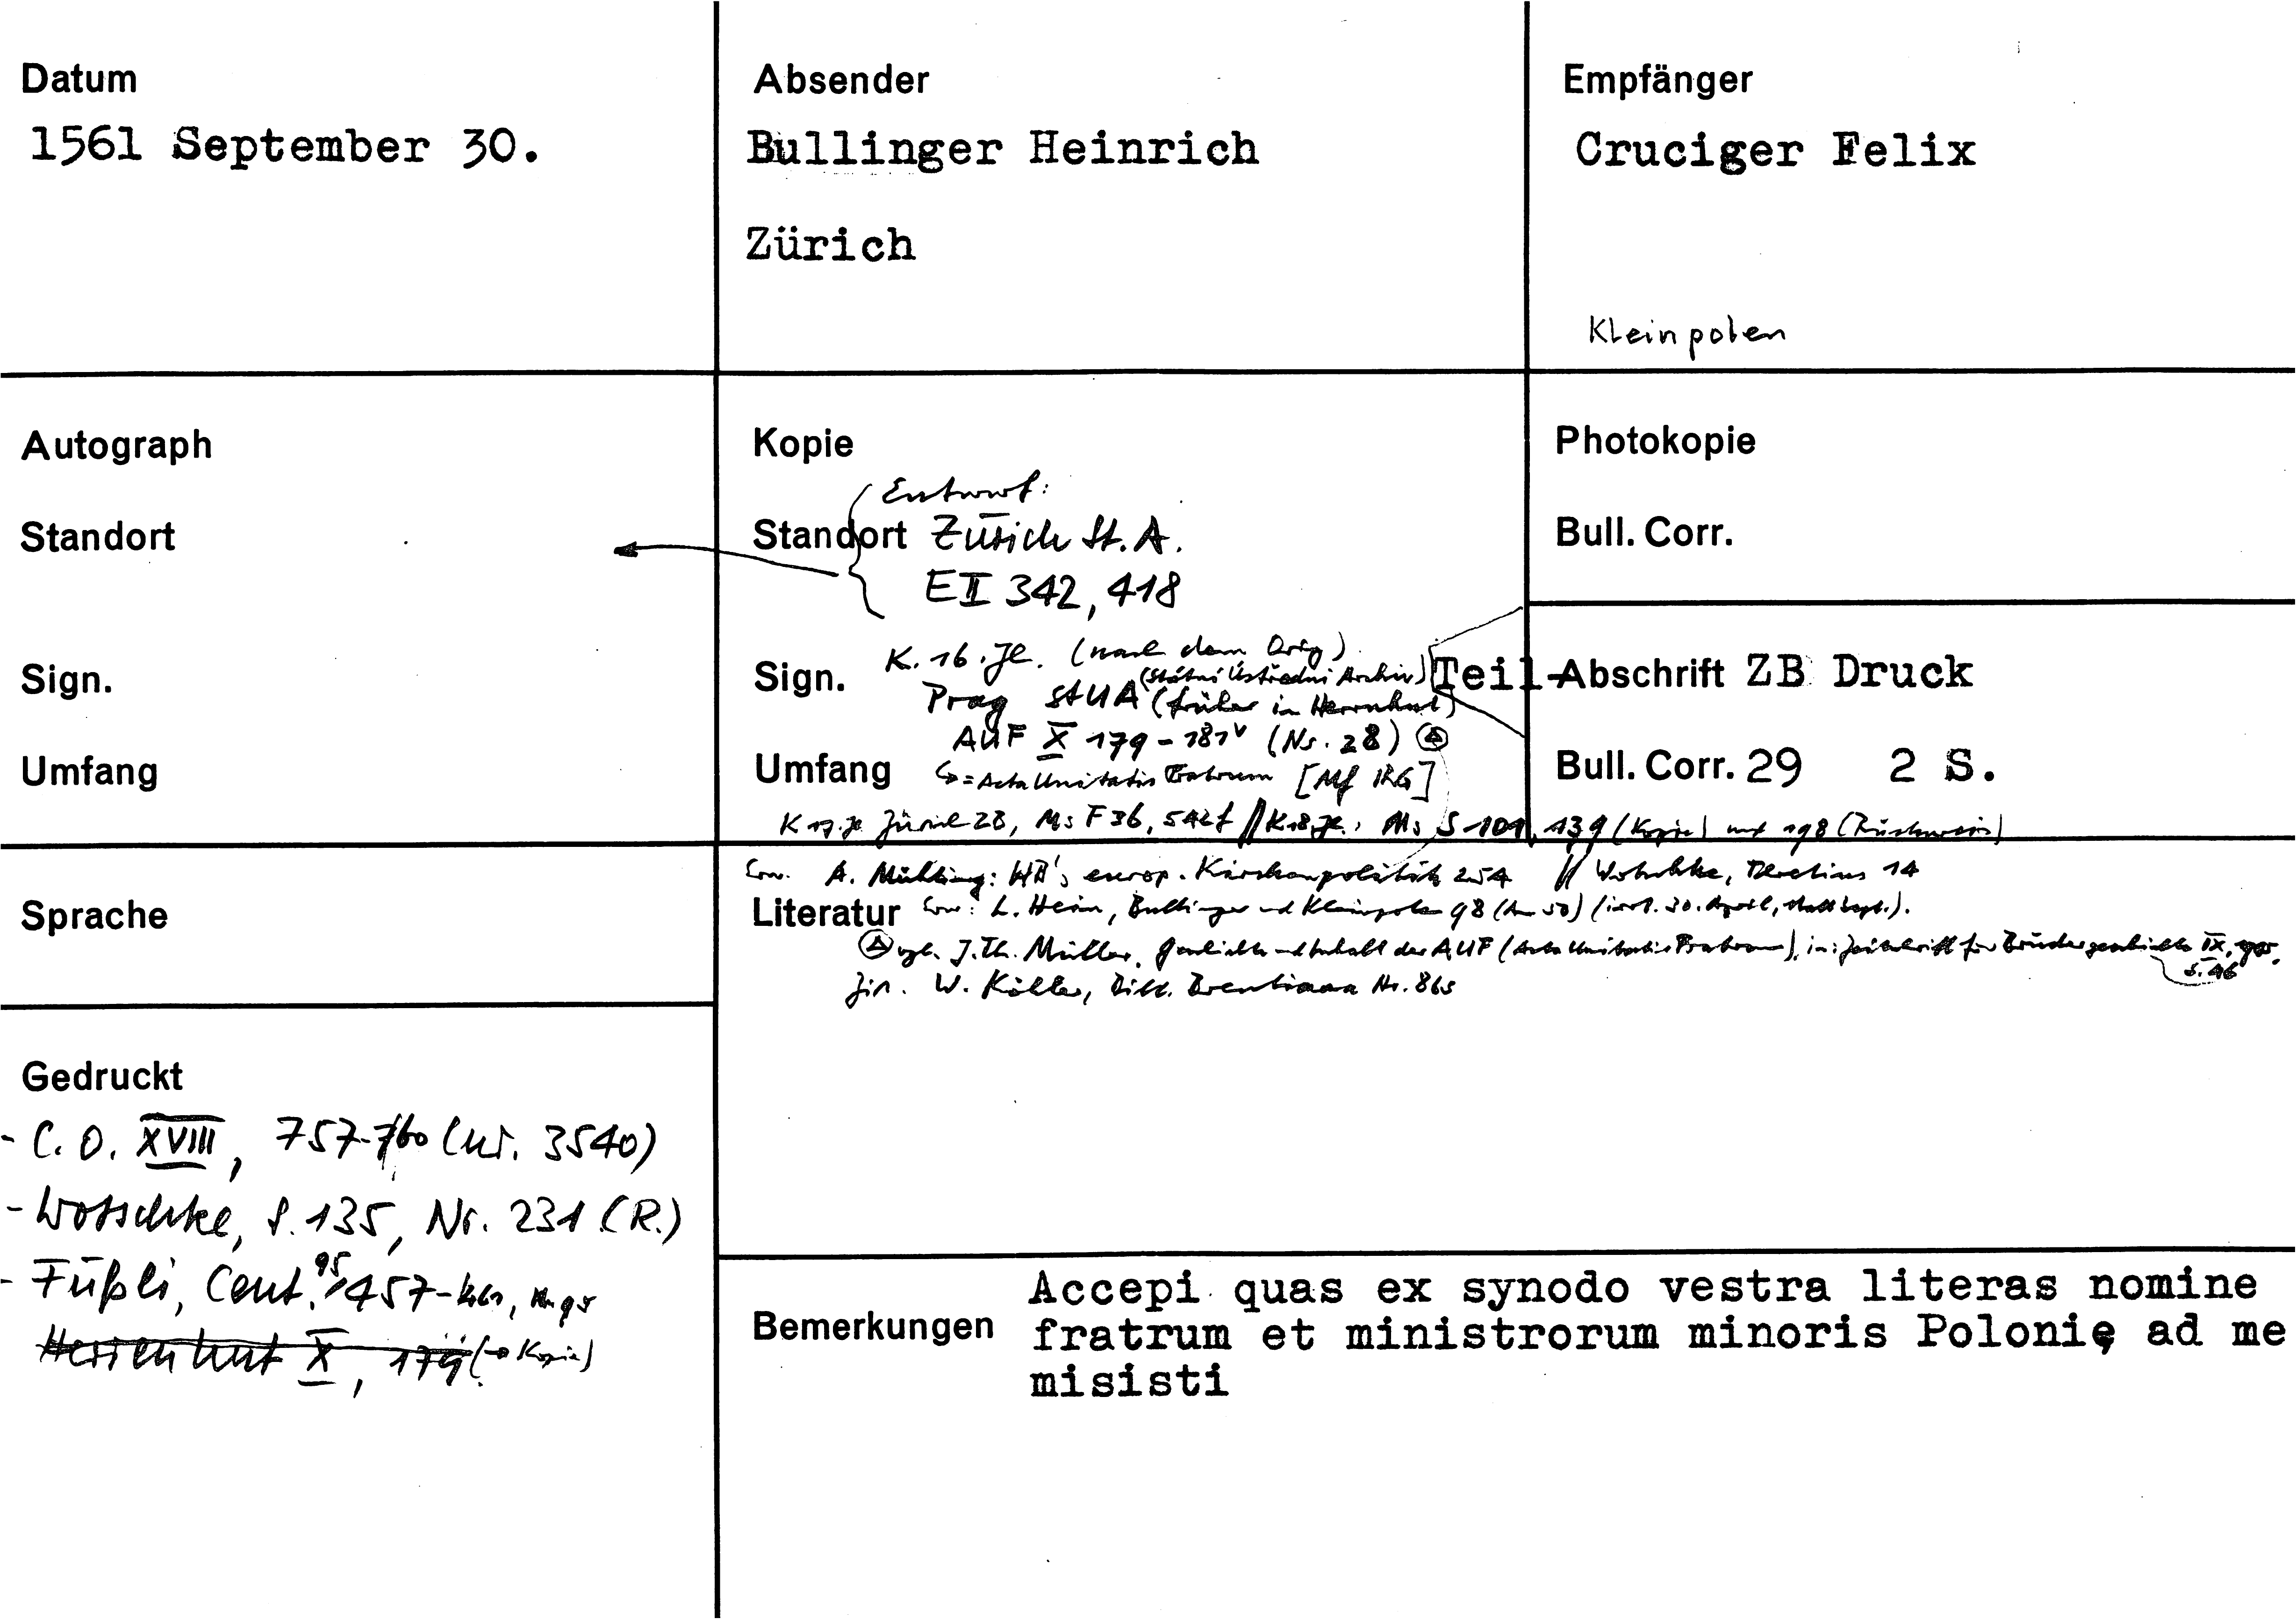 Datum
1561 September 30.
Absender
Bullinger Heinrich
Zürich
Empfänger
Cruciger Felix
Kleinpolen
Autograph
Standort
Sign.
Umfang
Kopie
Entwurf:
Standort Zürich St. A.
E II 342, 418
Sign. K. 16. Jh. (nach dem Orig)
(Státní Ústřední Archiv)
Prag StUA (früher in Herrnhut)
AUF X 179-181v (Nr. 28) A
Umfang = Acta Unitatis Fratrum [Mf IRG]
K 17. Jh Zürich ZB, Ms F 36, 542f // K 18. Jh., Ms S 101, 139 (Kopie) und 198 (Rückweis)
Photokopie
Bull. Corr.
Teil-Abschrift ZB Druck
Bull. Corr. 29 2 S.
Sprache
Erw. A. Mühling: HB's europ. Kirchenpolitik 254 // Wotschke, 14
Literatur Erw: L. Hein, Bullinger und Kleinpolen 98 (Am 50) (irrt. 30. April, statt Sept.).
A vgl. J. Th. Müller, Geschichte und Inhalt der AUF (Acta Unitatis Fratrum), in: Zeitschrift für Brüdergeschichte IX,
S. 46
Zit. W. Köhler, Bibl. Brentiana Nr. 865
Gedruckt
- C. O. XVIII, 757-760 (Nr. 3540)
- Wotschke, S. 135, Nr. 231 (R.)
- Füßli, Cent. 95 457-461, Nr 95
Herrenhut X, 179 (→ Kopie)
Bemerkungen
Accepi quas ex synodo vestra literas nomine
fratrum et ministrorum minoris Polonię ad me
misisti